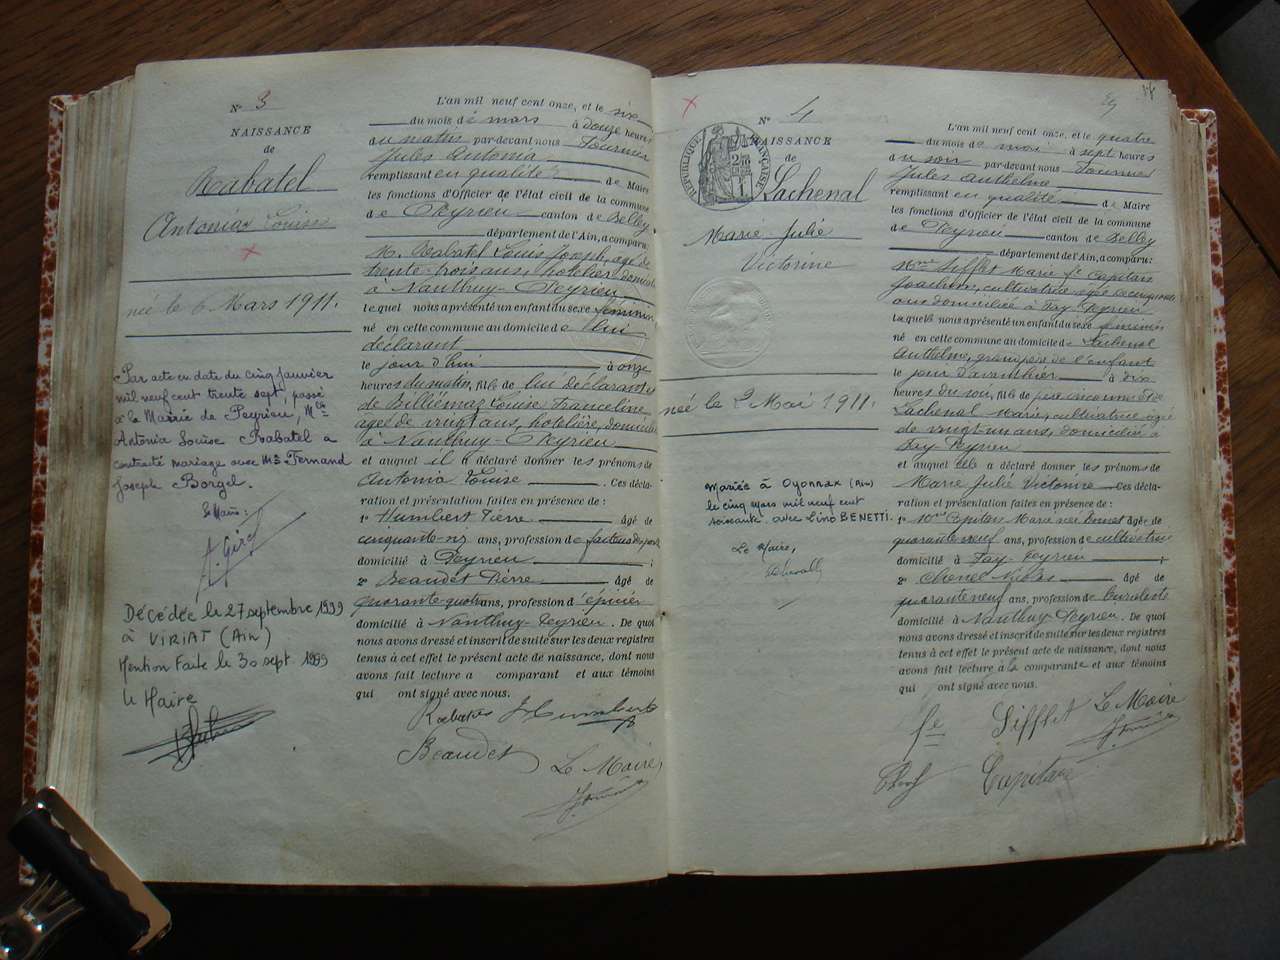 N° 3
NAISSANCE
de
Rabatel
Antonia Louise
née le 6 Mars 1911.
Par acte en date du cinq Janvier
mil neuf cent trente sept, passé
à la Mairie de Peyrieu, Mlle
Antonia Louise Rabatel a
contracté mariage avec Mr Fernand
Joseph Borgel.
Le Maire:
Décédée le 27 septembre 1999
à VIRIAT (Ain)
Mention faite le 30 sept. 1999
Le Maire
L'an mil neuf cent onze, et le six
du mois de mars à douze heures
du matin par-devant nous Fournier
Jules Antonia
remplissant en qualité de Maire
les fonctions d'Officier de l'état civil de la commune
de Peyrieu canton de Belley
département de l'Ain, a comparu:
M. Rabatel Louis Joseph, agé de
trente-trois ans, hotelier, domicilié
à Nanthuy-Peyrieu
lequel nous a présenté un enfant du sexe féminin
né en cette commune au domicile de lui
déclarant
le jour d'hui à onze
heures du matin, fille de lui déclarant et
de Billiémaz Louise Franceline
agée de vingt ans, hotelière, domiciliée
à Nanthuy-Peyrieu
et auquel il a déclaré donner les prénoms de
Antonia Louise . Ces décla-
ration et présentation faites en présence de :
1° Humbert Pierre âgé de
cinquante- ans, profession de facteur des postes
domicilié à Peyrieu ;
2° Beaudet Pierre âgé de
quarante-quatre ans, profession d'épicier
domicilié à Nanthuy-Peyrieu. De quoi
nous avons dressé et inscrit de suite sur les deux registres
tenus à cet effet le présent acte de naissance, dont nous
avons fait lecture a comparant et aux témoins
qui ont signé avec nous.
Rabatel Humbert
Beaudet Le Maire
N° 4
NAISSANCE
de
RÉPUBLIQUE FRANÇAISE
Lachenal
Marie Julie
Victorine
née le 2 Mai 1911.
Mariée à Oyonnax (Ain)
le cinq mars mil neuf cent
soixante avec Lino BENETTI.
Le Maire,
L'an mil neuf cent onze, et le quatre
du mois de mai à sept heures
du soir par-devant nous Fournier
Jules Anthelme
remplissant en qualité de Maire
les fonctions d'Officier de l'état civil de la commune
de Peyrieu canton de Belley
département de l'Ain, a comparu:
Mme Sifflet Marie Fe Capitan
Joachim, cultivatrice agée de cinquante
ans domiciliée à Fay-Peyrieu
laquelle nous a présenté un enfant du sexe féminin
né en cette commune au domicile de Lachenal
Anthelme, grand père de l'enfant
le jour d'avant hier à dix
heures du soir, fille de père inconnu et de
Lachenal Marie, cultivatrice agée
de vingt un ans, domiciliée à
Fay Peyrieu
et auquel elle a déclaré donner les prénoms de
Marie Julie Victorine Ces décla-
ration et présentation faites en présence de :
1° Mme Capitan Marie née âgée de
quarante neuf ans, profession de cultivatrice
domicilié à Fay-Peyrieu ;
2° Chenet Nicolas âgé de
quarante neuf ans, profession de buraliste
domicilié à Nanthuy-Peyrieu. De quoi
nous avons dressé et inscrit de suite sur les deux registres
tenus à cet effet le présent acte de naissance, dont nous
avons fait lecture à la comparante et aux témoins
qui ont signé avec nous.
fe Sifflet Le Maire
Capitan